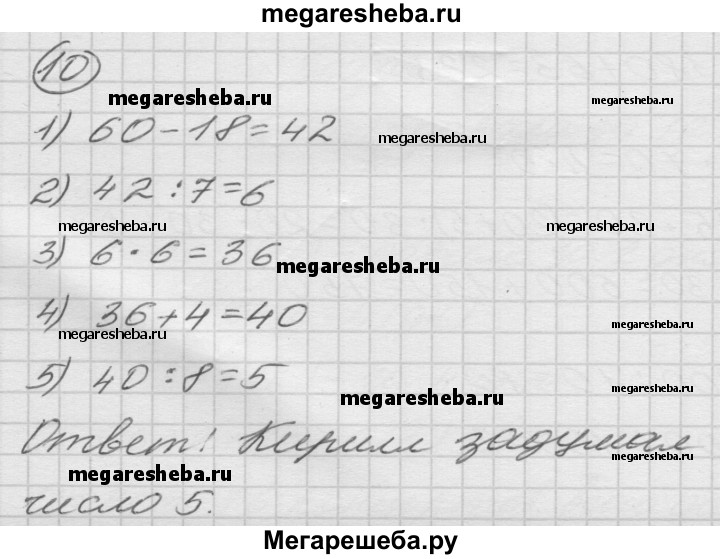 megaresheba.ru
10
megaresheba.ru
megaresheba.ru
1) 60-18=42
megaresheba.ru
2) 42:7=6
megaresheba.ru
megaresheba.ru
3) 6·6=36
megaresheba.ru
4) 36+4=40
megaresheba.ru
megaresheba.ru
5) 40:8=5
megaresheba.ru
megaresheba.ru
Ответ: Кирилл задумал
megaresheba.ru
megaresheba.ru
число 5.
Мегарешеба.ру